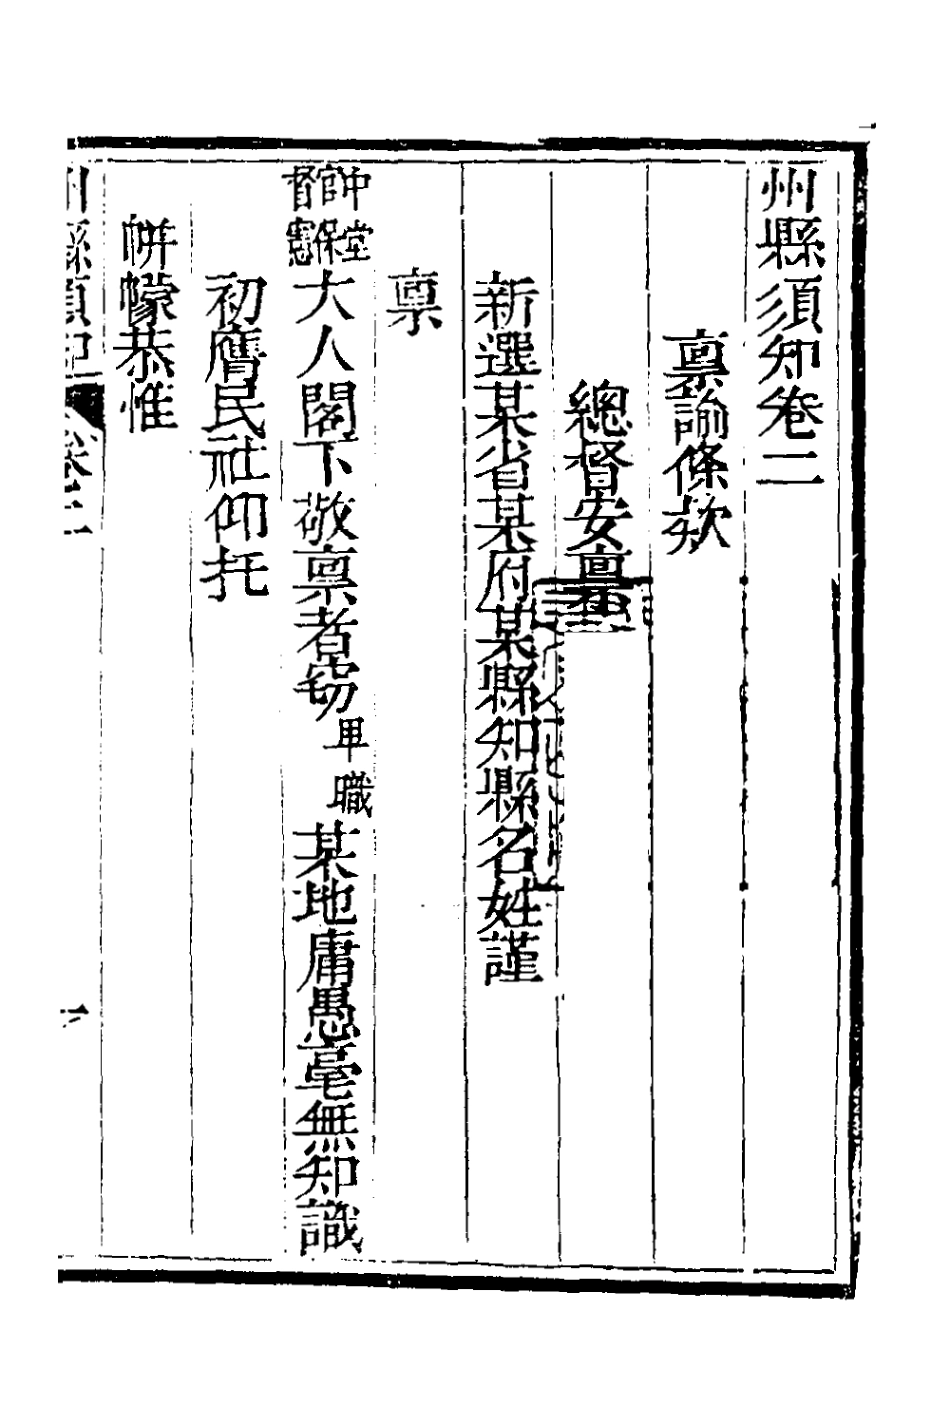 州縣須知卷二
稟諭條欵
總督安稟
新選某省某府某縣知縣名姓謹
稟
中堂
官保
督憲
大人閣下敬稟者窃卑職某地庸愚毫無知識
初膺民社仰托
帡幪恭惟
州縣須知 卷二 一